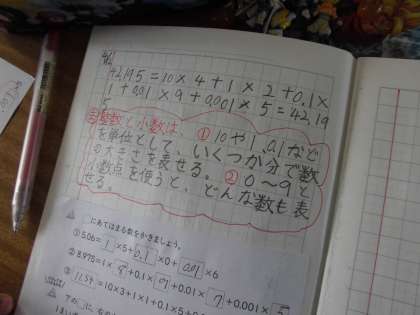 42.195=10×4+1×2+0.1×
1+0.01×9+0.001×5=42.19
5
整数と小数は、①10や1、0.1など
を単位として、いくつか分で数
の大きさを表せる。②0〜9と
小数点を使うと、どんな数も表
せる。
□にあてはまる数をかきましょう。
①5.06=1×5+0.1×0+0.01×6
②8.975=1×8+0.1×
=10×3+1×1+0.1×5+